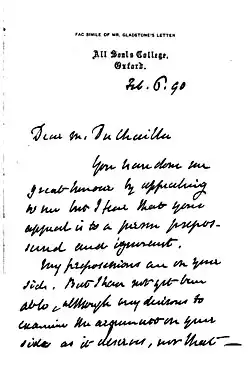 FAC SIMILE OF MR. GLADSTONE'S LETTER
All Souls College,
Oxford.
Feb. 6. 90
Dear M. Du Chaillu
You have done me
great honour by appealing
to me but I fear that your
appeal is to a person prepos-
sessed and ignorant.
My prepossessions are on your
side. But I have not yet been
able, although very desirous to
examine the argument on your
side as it deserves, nor that —